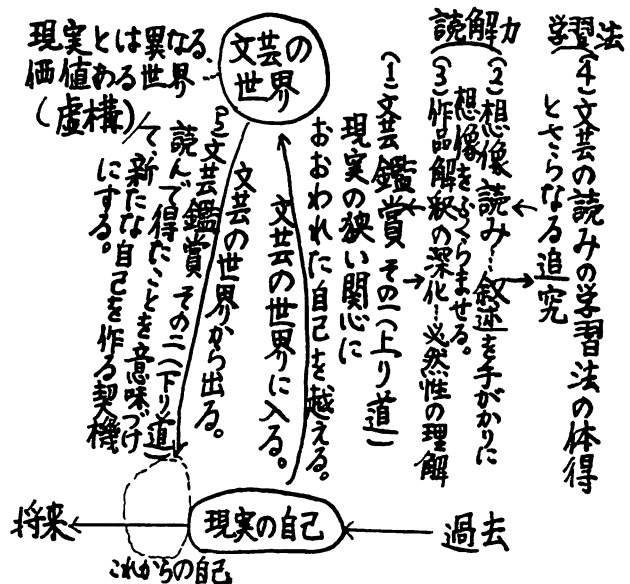 学習法
(4)文芸の読みの学習法の体得
とさらなる追究
読解力
(2)想像読み…叙述を手がかりに
想像をふくらませる。
(3)作品解釈の深化…必然性の理解
(1)文芸鑑賞 その一(上り道)
現実の狭い関心に
おおわれた自己を越える。
文芸の世界に入る。
文芸の
世界
現実とは異なる
価値ある世界
(虚構)
文芸の世界から出る。
(5)文芸鑑賞 その二(下り道)
読んで得たことを意味づけ
て、新たな自己を作る契機
にする。
過去
現実の自己
将来
これからの自己